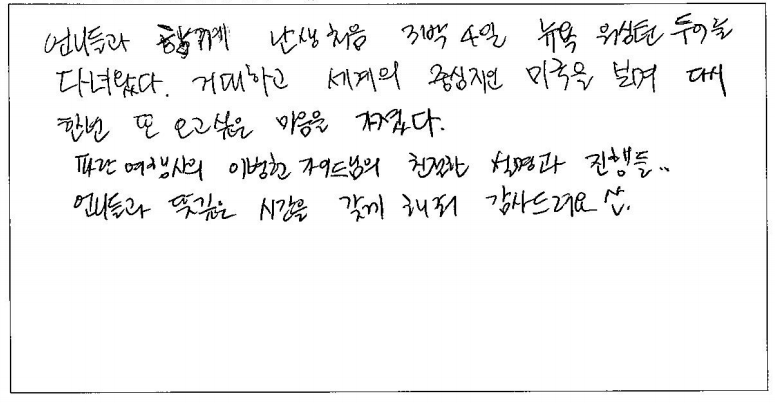 언니들과 함께 난생처음 3박 4일 뉴욕 워싱턴 투어를
다녀왔다. 거대하고 세계의 중심지인 미국을 보며 다시
한번 또 오고싶은 마음을 가졌다.
파란여행사의 이범헌 가이드님의 친절한 설명과 진행들..
언니들과 뜻깊은 시간을 갖게 해줘 감사드려요